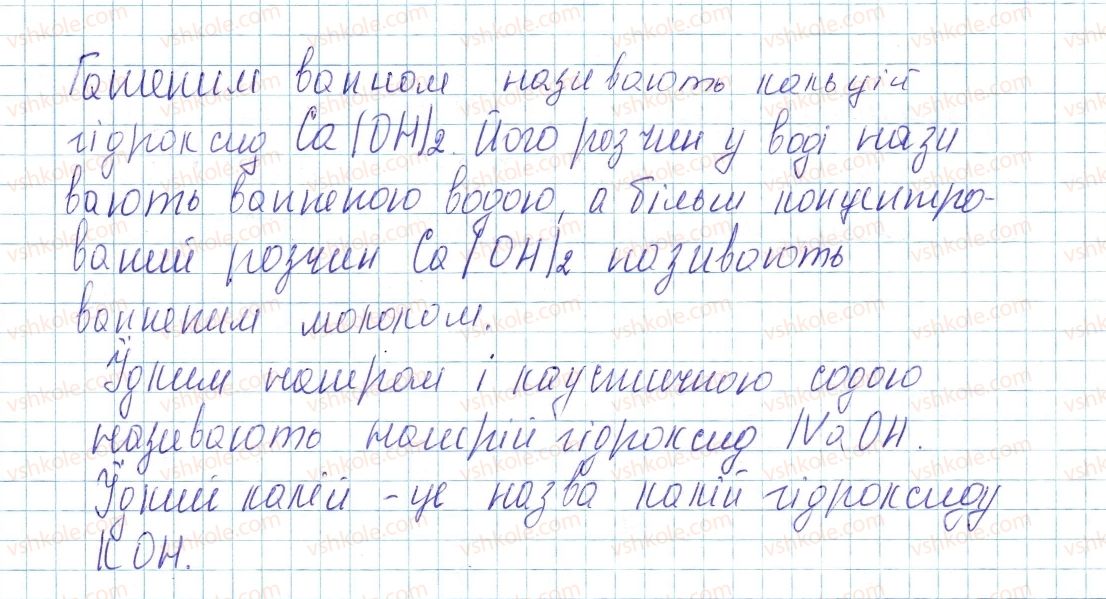 Гашеним вапном називають кальцій
гідроксид Ca(OH)2. Його розчин у воді нази
вають вапняною водою, а більш концентро-
ваний розчин Ca(OH)2 називають
вапняним молоком.
Їдким натром і каустичною содою
називають натрій гідроксид NaOH.
Їдкий калій - це назва калій гідроксиду
KOH.